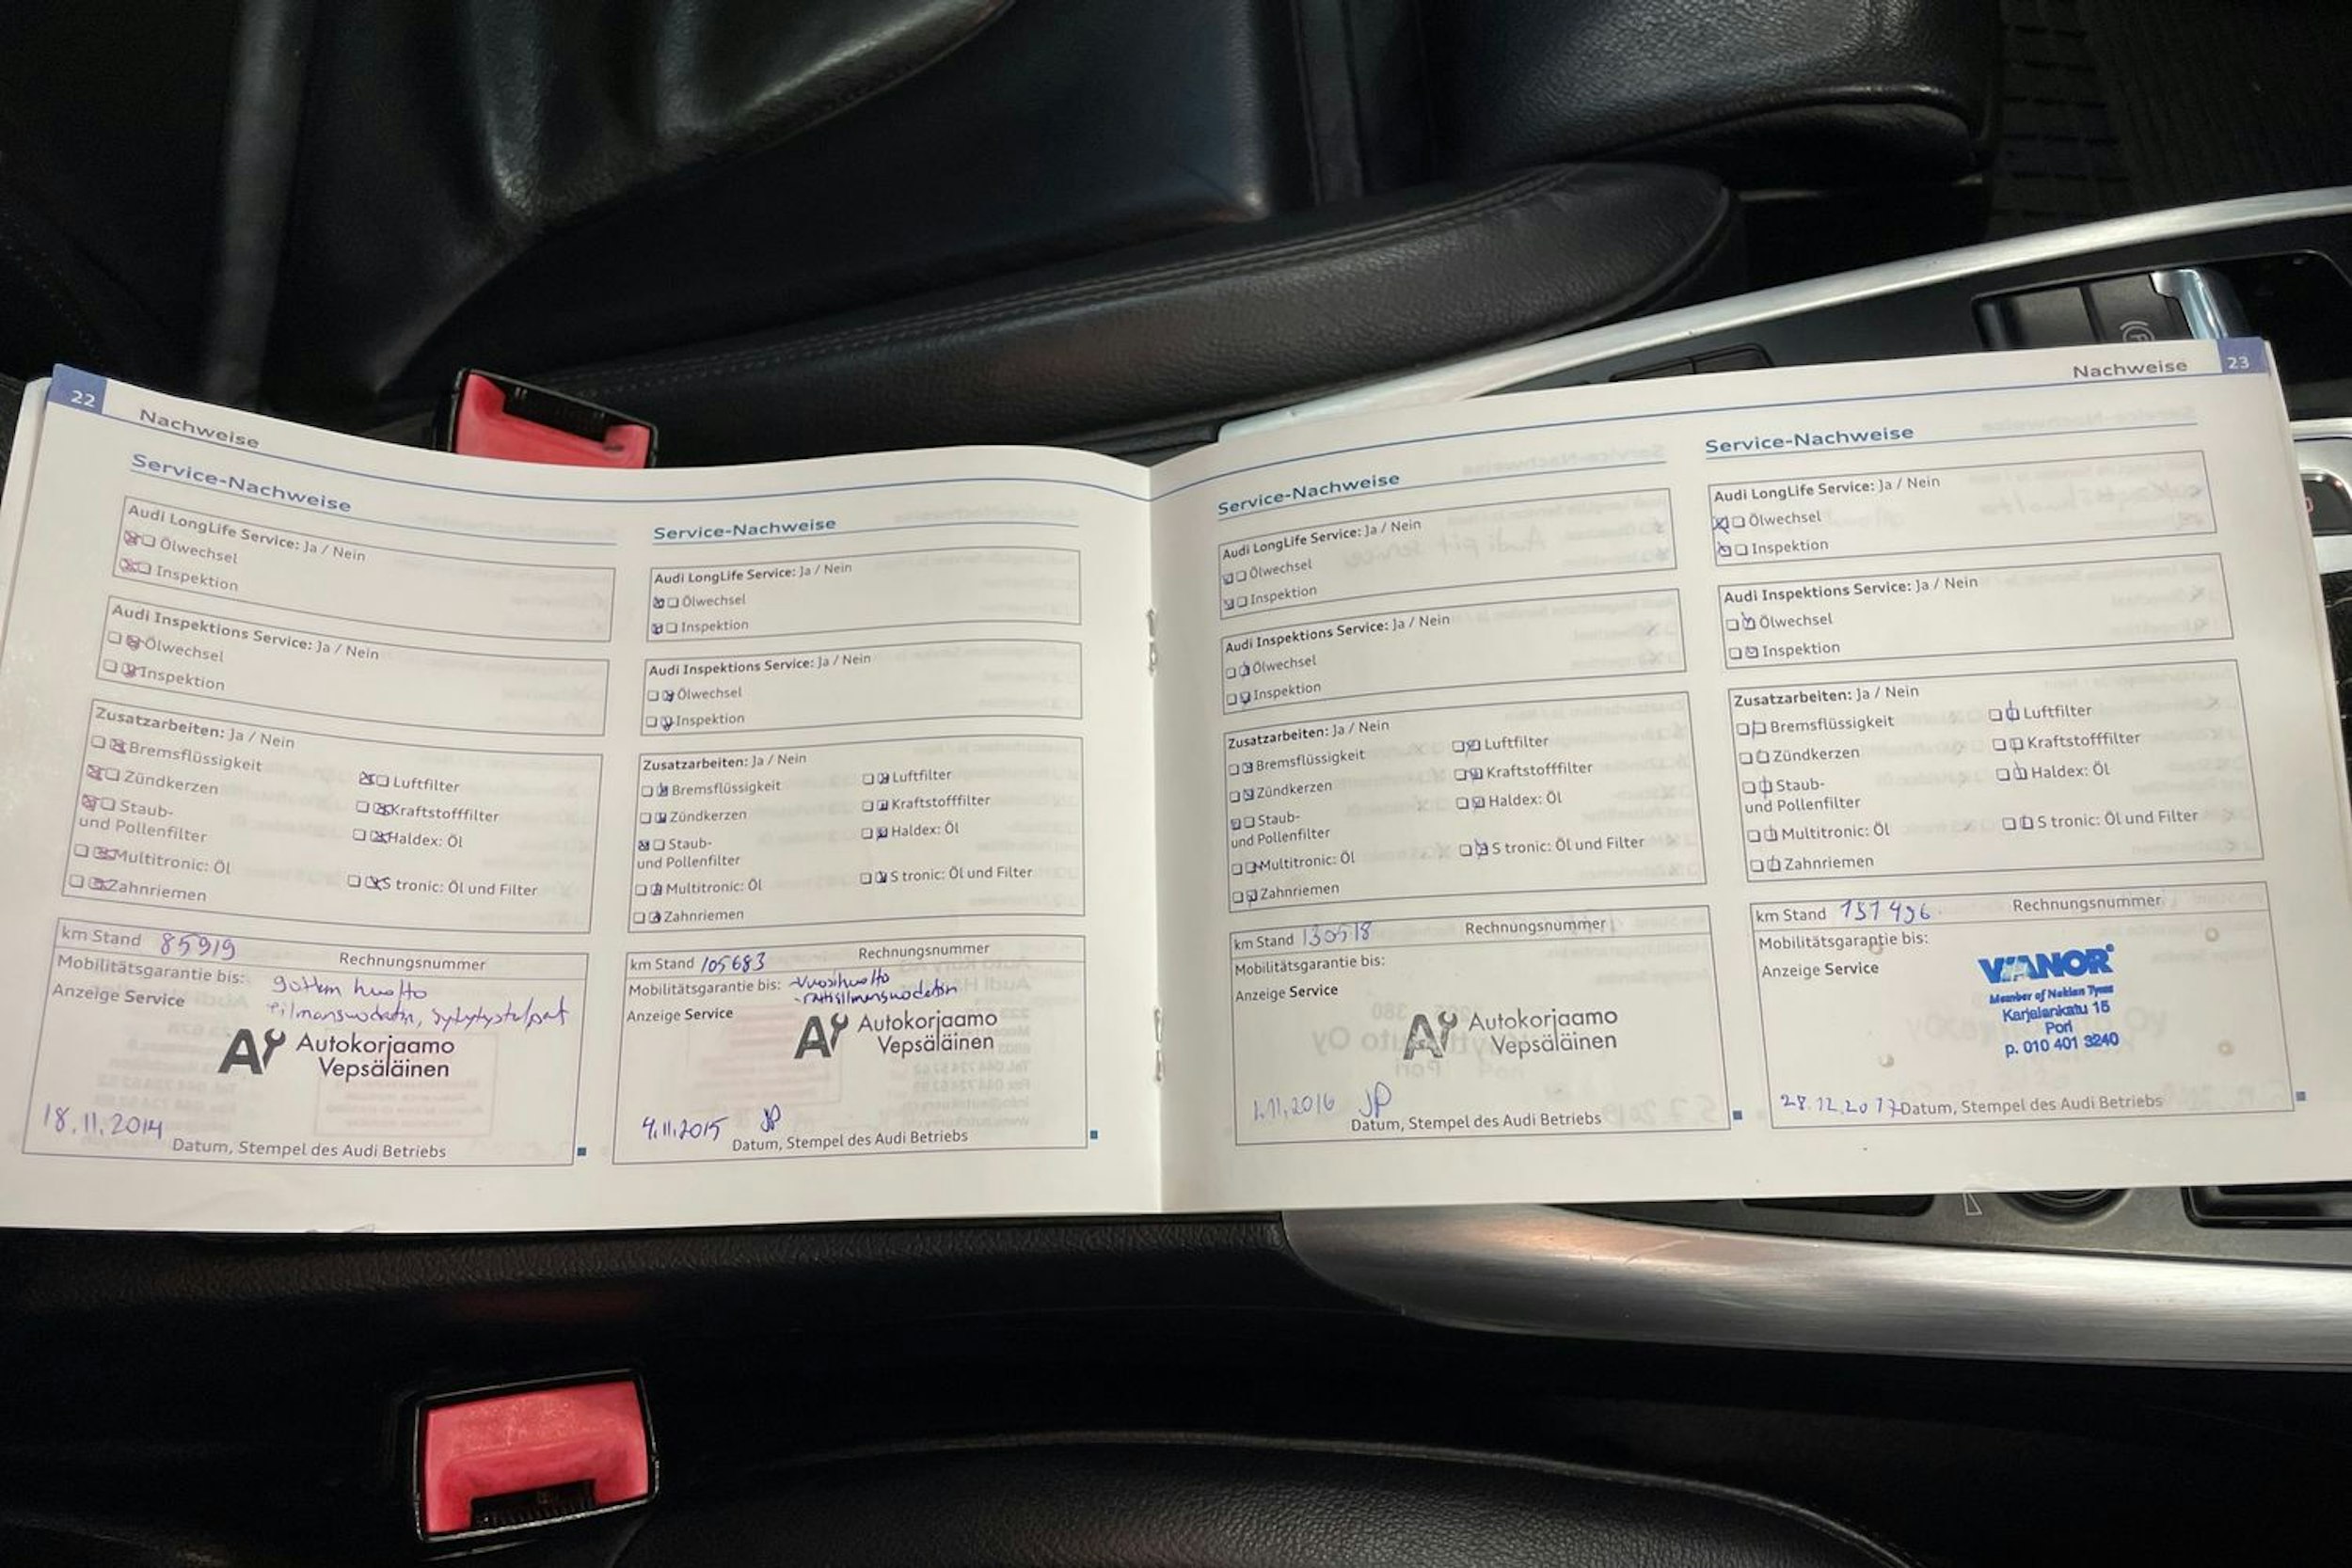 22
Nachweise
Service-Nachweise
Audi LongLife Service: Ja / Nein
Ölwechsel
Inspektion
Audi Inspektions Service: Ja / Nein
Ölwechsel
Inspektion
Zusatzarbeiten: Ja / Nein
Bremsflüssigkeit
Zündkerzen
Luftfilter
Staub-
und Pollenfilter
Kraftstofffilter
Haldex: Öl
Multitronic: Öl
Zahnriemen
S tronic: Öl und Filter
km Stand 85919
Rechnungsnummer
Mobilitätsgarantie bis:
huolto
Anzeige Service
Autokorjaamo
Vepsäläinen
18.11.2014
Datum, Stempel des Audi Betriebs
Service-Nachweise
Audi LongLife Service: Ja / Nein
Ölwechsel
Inspektion
Audi Inspektions Service: Ja / Nein
Ölwechsel
Inspektion
Zusatzarbeiten: Ja / Nein
Bremsflüssigkeit
Luftfilter
Zündkerzen
Kraftstofffilter
Staub-
und Pollenfilter
Haldex: Öl
Multitronic: Öl
S tronic: Öl und Filter
Zahnriemen
km Stand 105683
Rechnungsnummer
Mobilitätsgarantie bis: -Vuosihuolto
Anzeige Service
Autokorjaamo
Vepsäläinen
4.11.2015 JP
Datum, Stempel des Audi Betriebs
Nachweise
23
Service-Nachweise
Audi LongLife Service: Ja / Nein
Ölwechsel
Inspektion
Audi Inspektions Service: Ja / Nein
Ölwechsel
Inspektion
Zusatzarbeiten: Ja / Nein
Bremsflüssigkeit
Luftfilter
Zündkerzen
Kraftstofffilter
Staub-
und Pollenfilter
Haldex: Öl
Multitronic: Öl
S tronic: Öl und Filter
Zahnriemen
km Stand 130518
Rechnungsnummer
Mobilitätsgarantie bis:
Anzeige Service
Autokorjaamo
Vepsäläinen
1.11.2016 JP
Datum, Stempel des Audi Betriebs
Service-Nachweise
Audi LongLife Service: Ja / Nein
Ölwechsel
Inspektion
Audi Inspektions Service: Ja / Nein
Ölwechsel
Inspektion
Zusatzarbeiten: Ja / Nein
Bremsflüssigkeit
Luftfilter
Zündkerzen
Kraftstofffilter
Staub-
und Pollenfilter
Haldex: Öl
Multitronic: Öl
S tronic: Öl und Filter
Zahnriemen
km Stand 151496
Rechnungsnummer
Mobilitätsgarantie bis:
Anzeige Service
VIANOR
Member of Nokian Tyres
Karjalankatu 15
Pori
p. 010 401 3240
28.12.2017 Datum, Stempel des Audi Betriebs